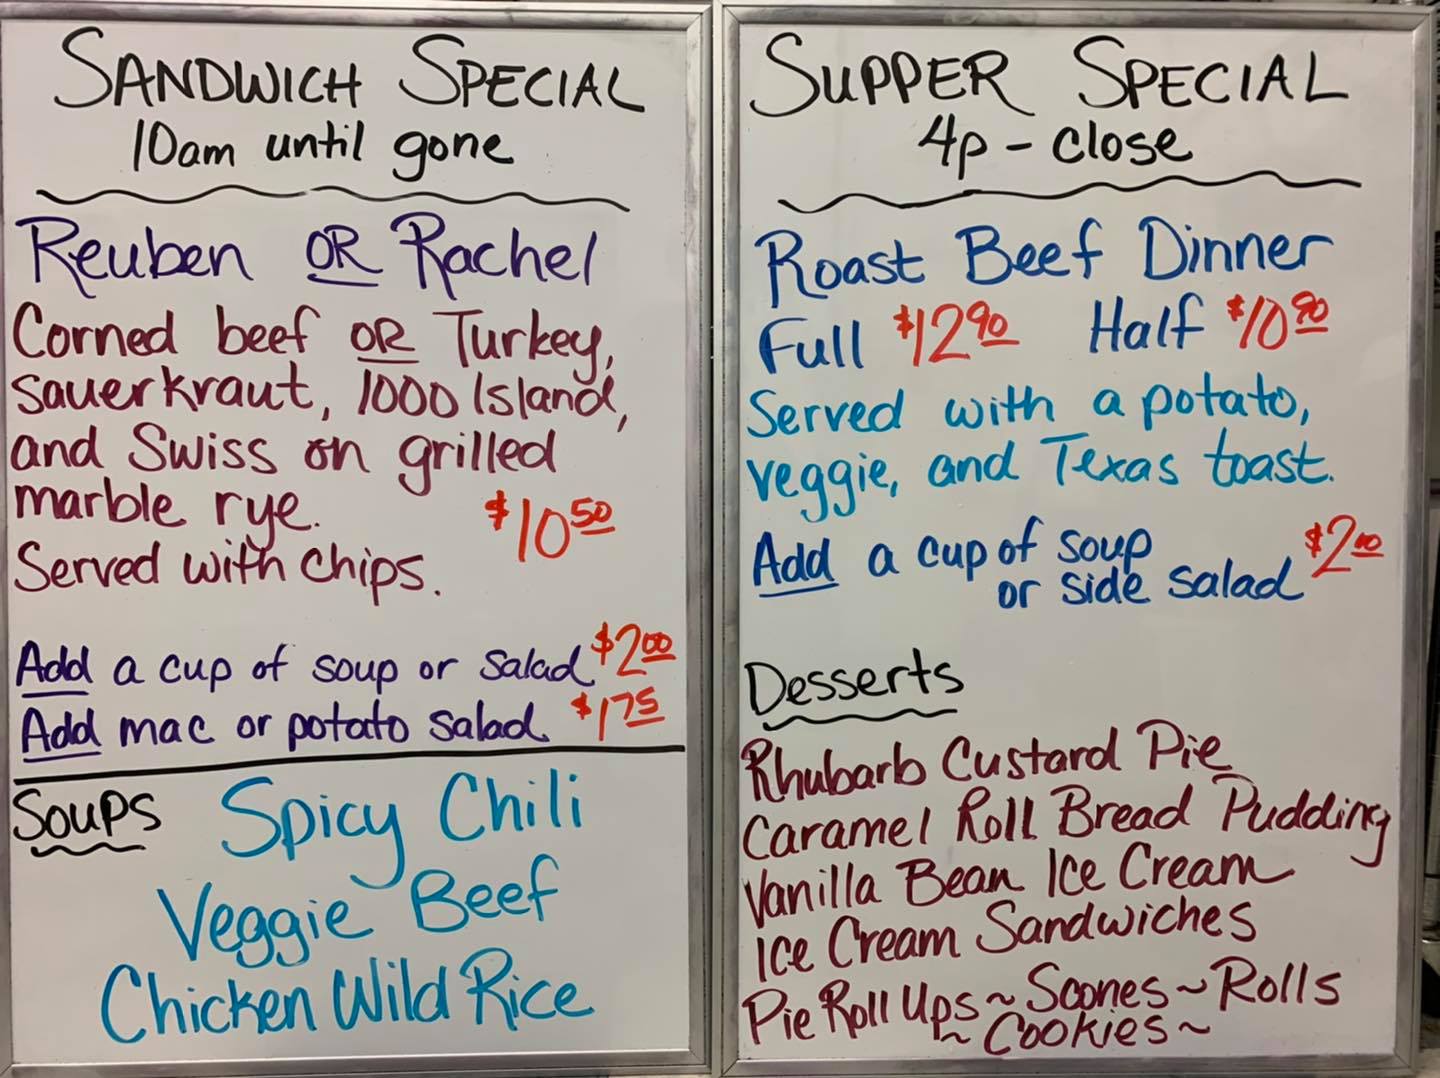 SANDWICH SPECIAL
10am until gone
Reuben OR Rachel
Corned beef OR Turkey,
sauerkraut, 1000 Island,
and Swiss on grilled
marble rye. $10.50
Served with chips.
Add a cup of soup or salad $2.00
Add mac or potato salad $1.75
Soups Spicy Chili
Veggie Beef
Chicken Wild Rice
SUPPER SPECIAL
4p - close
Roast Beef Dinner
Full $12.90 Half $10.90
Served with a potato,
veggie, and Texas toast.
Add a cup of soup
or side salad $2.00
Desserts
Rhubarb Custard Pie
Caramel Roll Bread Pudding
Vanilla Bean Ice Cream
Ice Cream Sandwiches
Pie Roll Ups ~ Scones ~ Rolls
~ Cookies ~